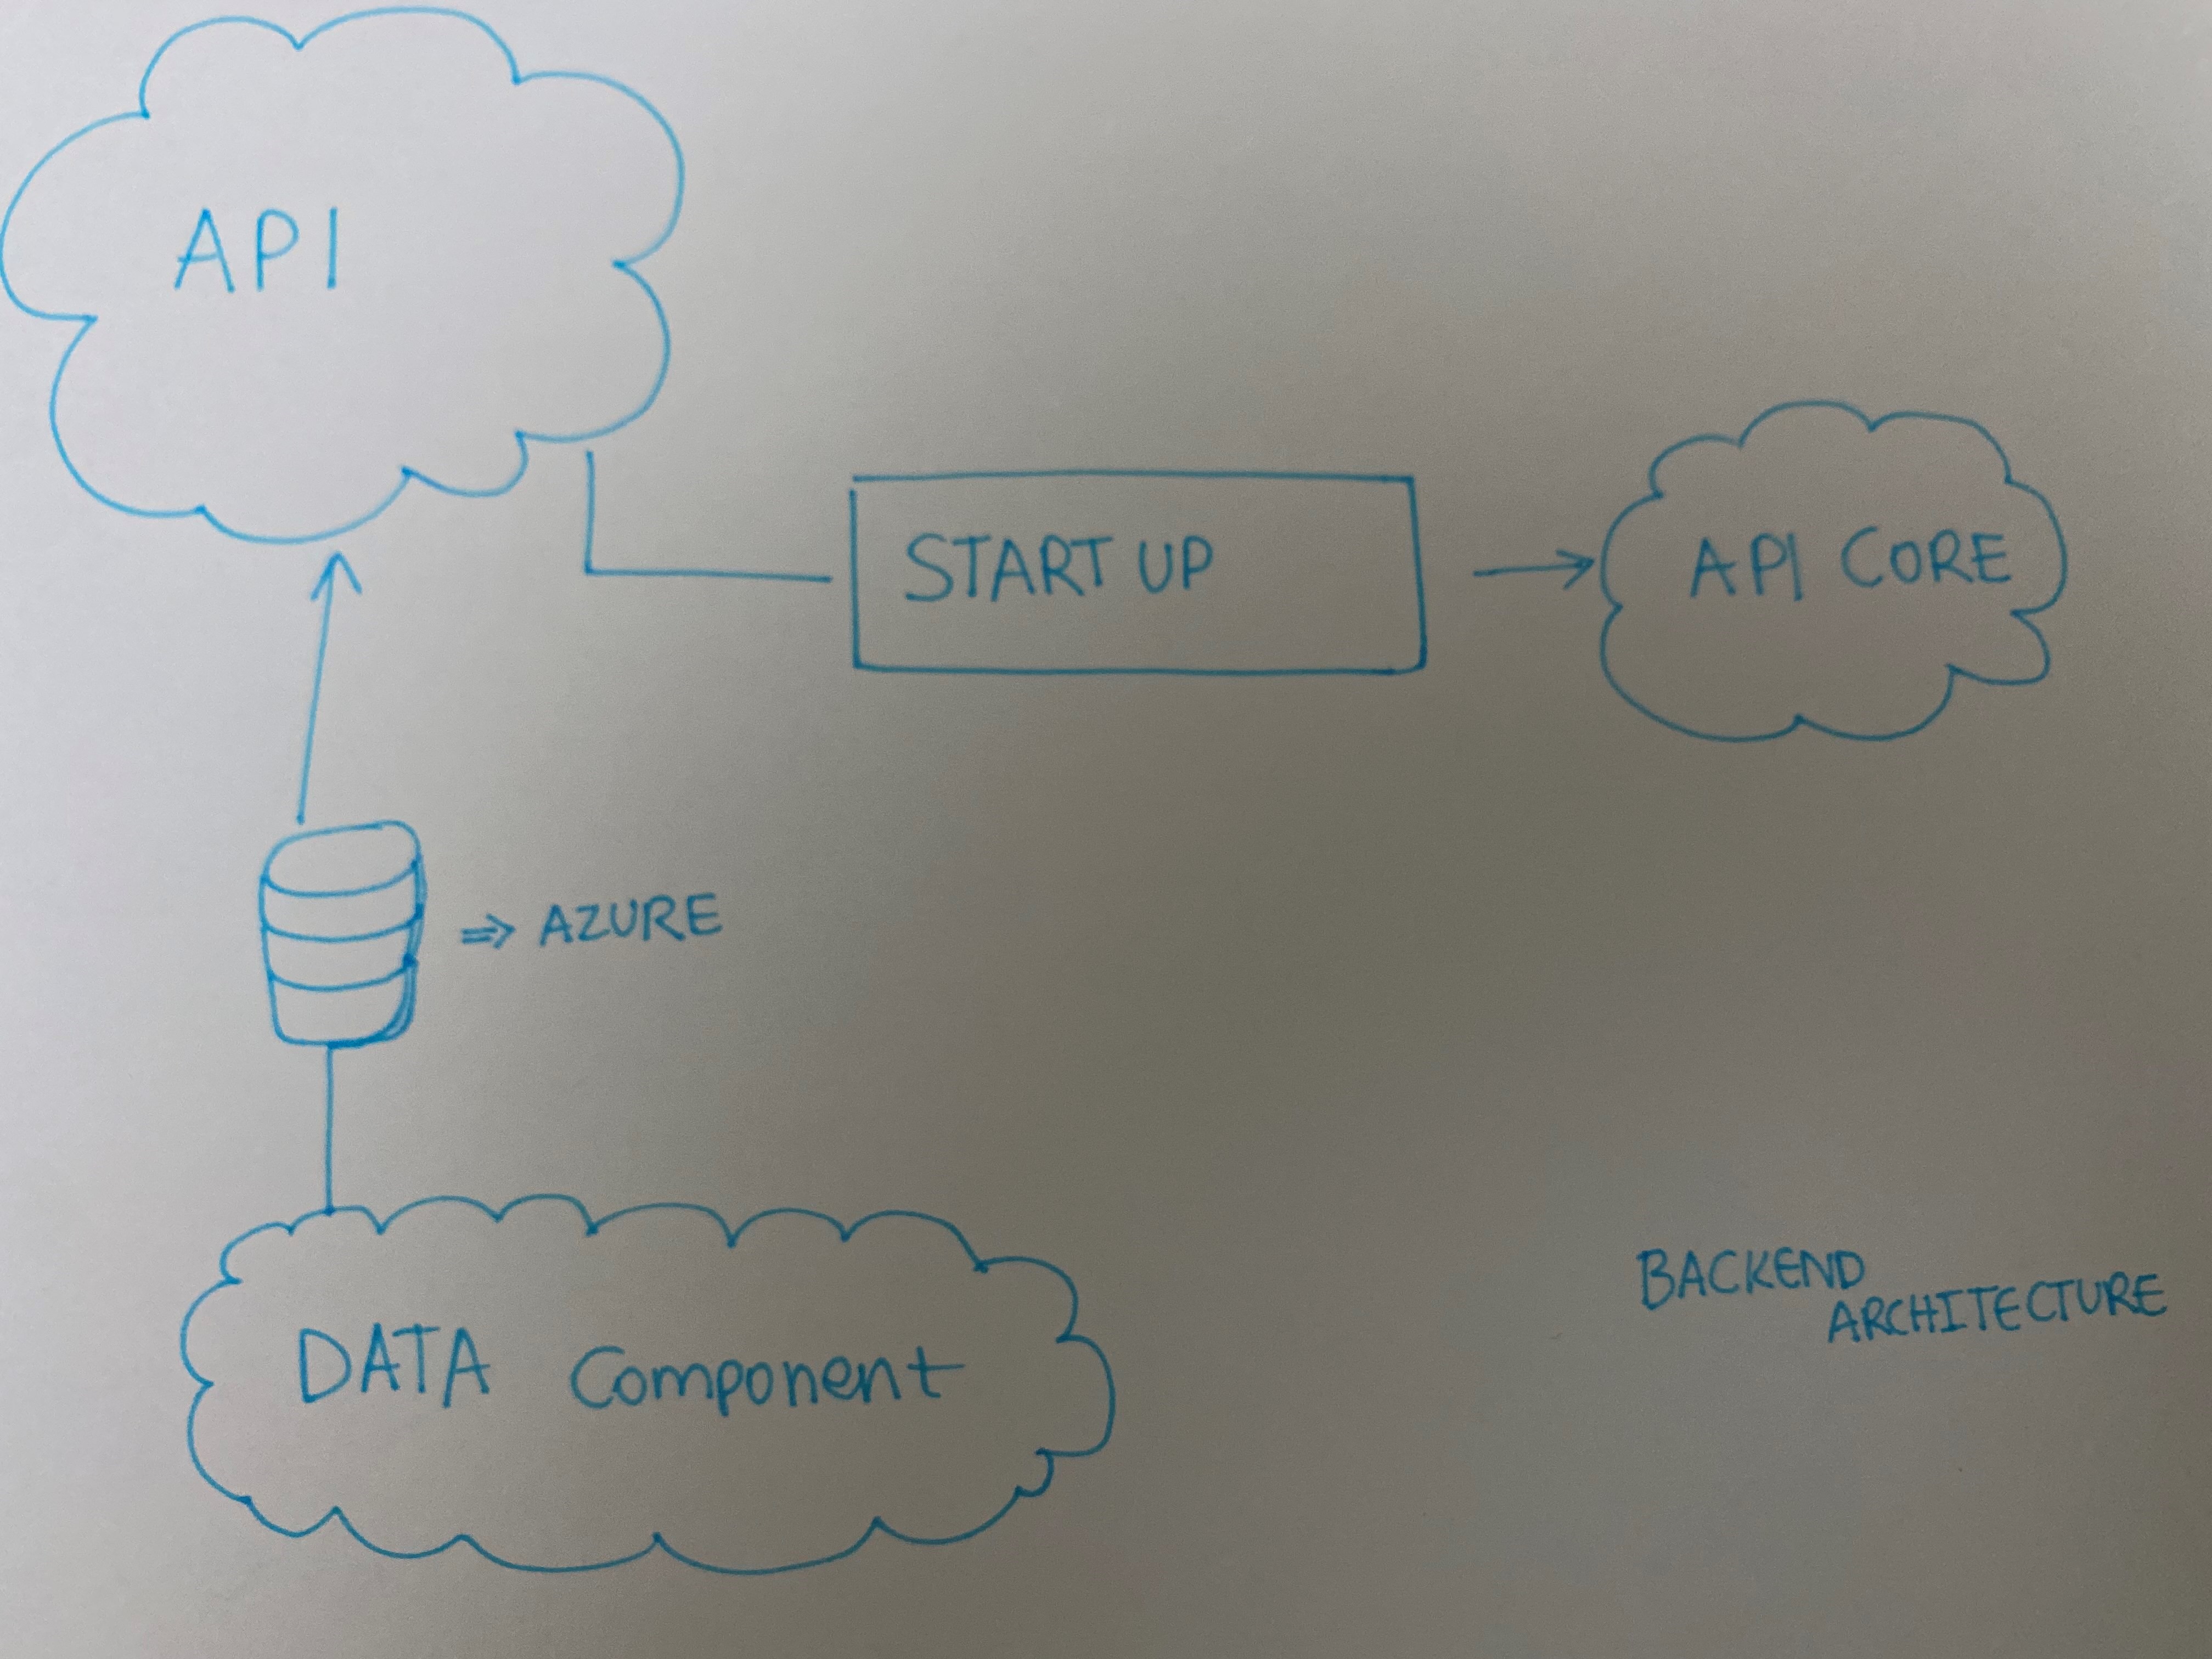 API
START UP
API CORE
⇒ AZURE
DATA Component
BACKEND
ARCHITECTURE